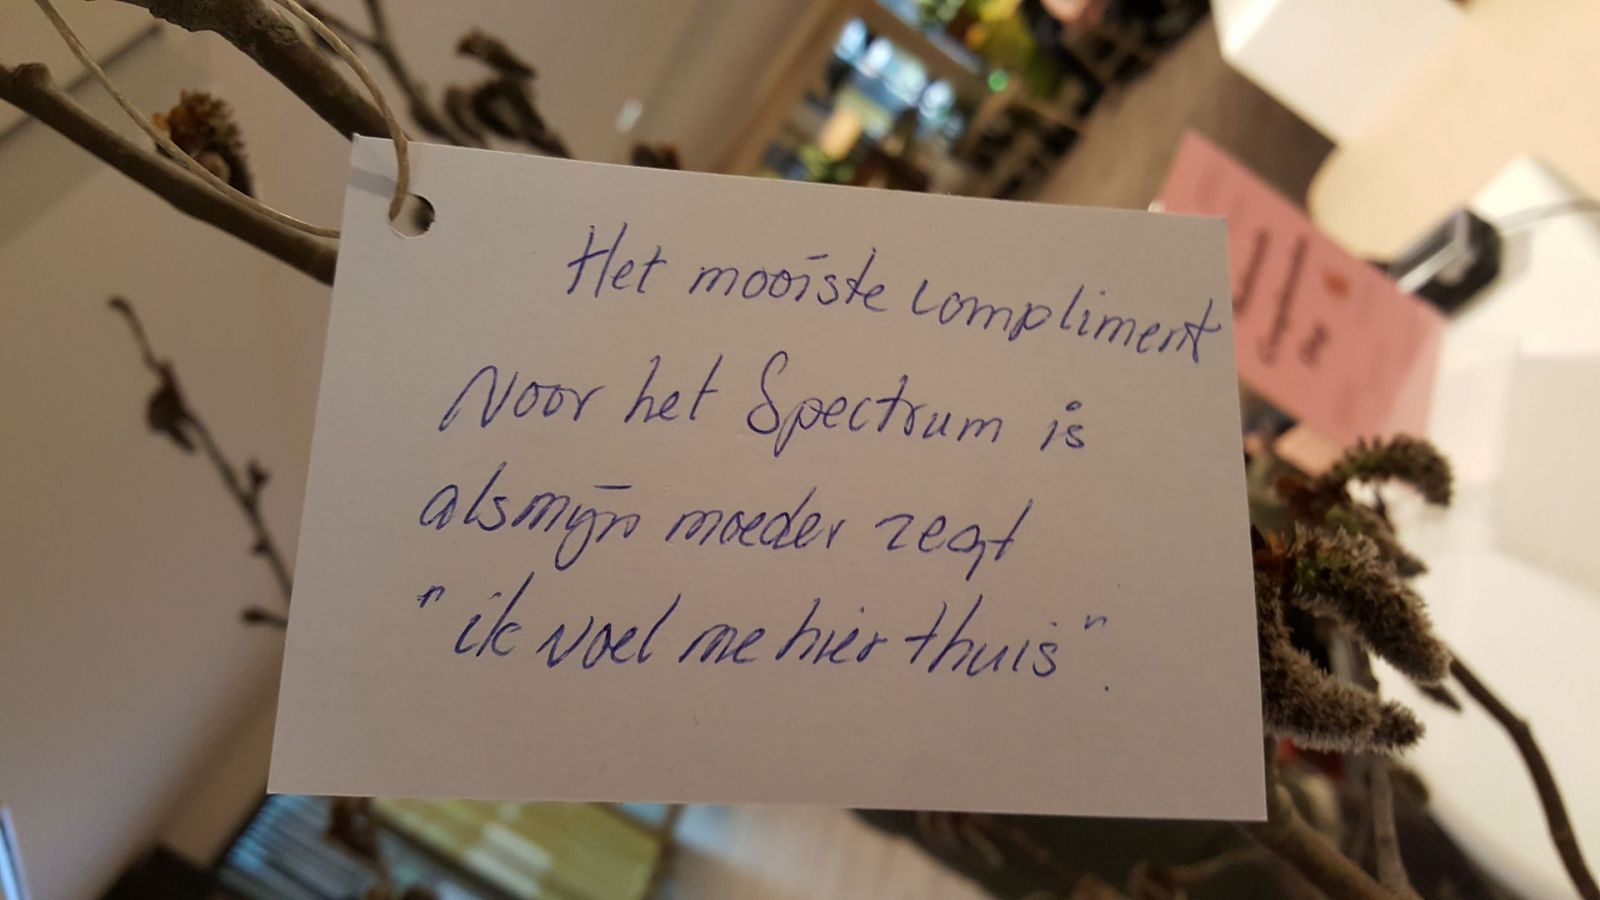 Het mooiste compliment
voor het Spectrum is
als mijn moeder zegt
"ik voel me hier thuis".